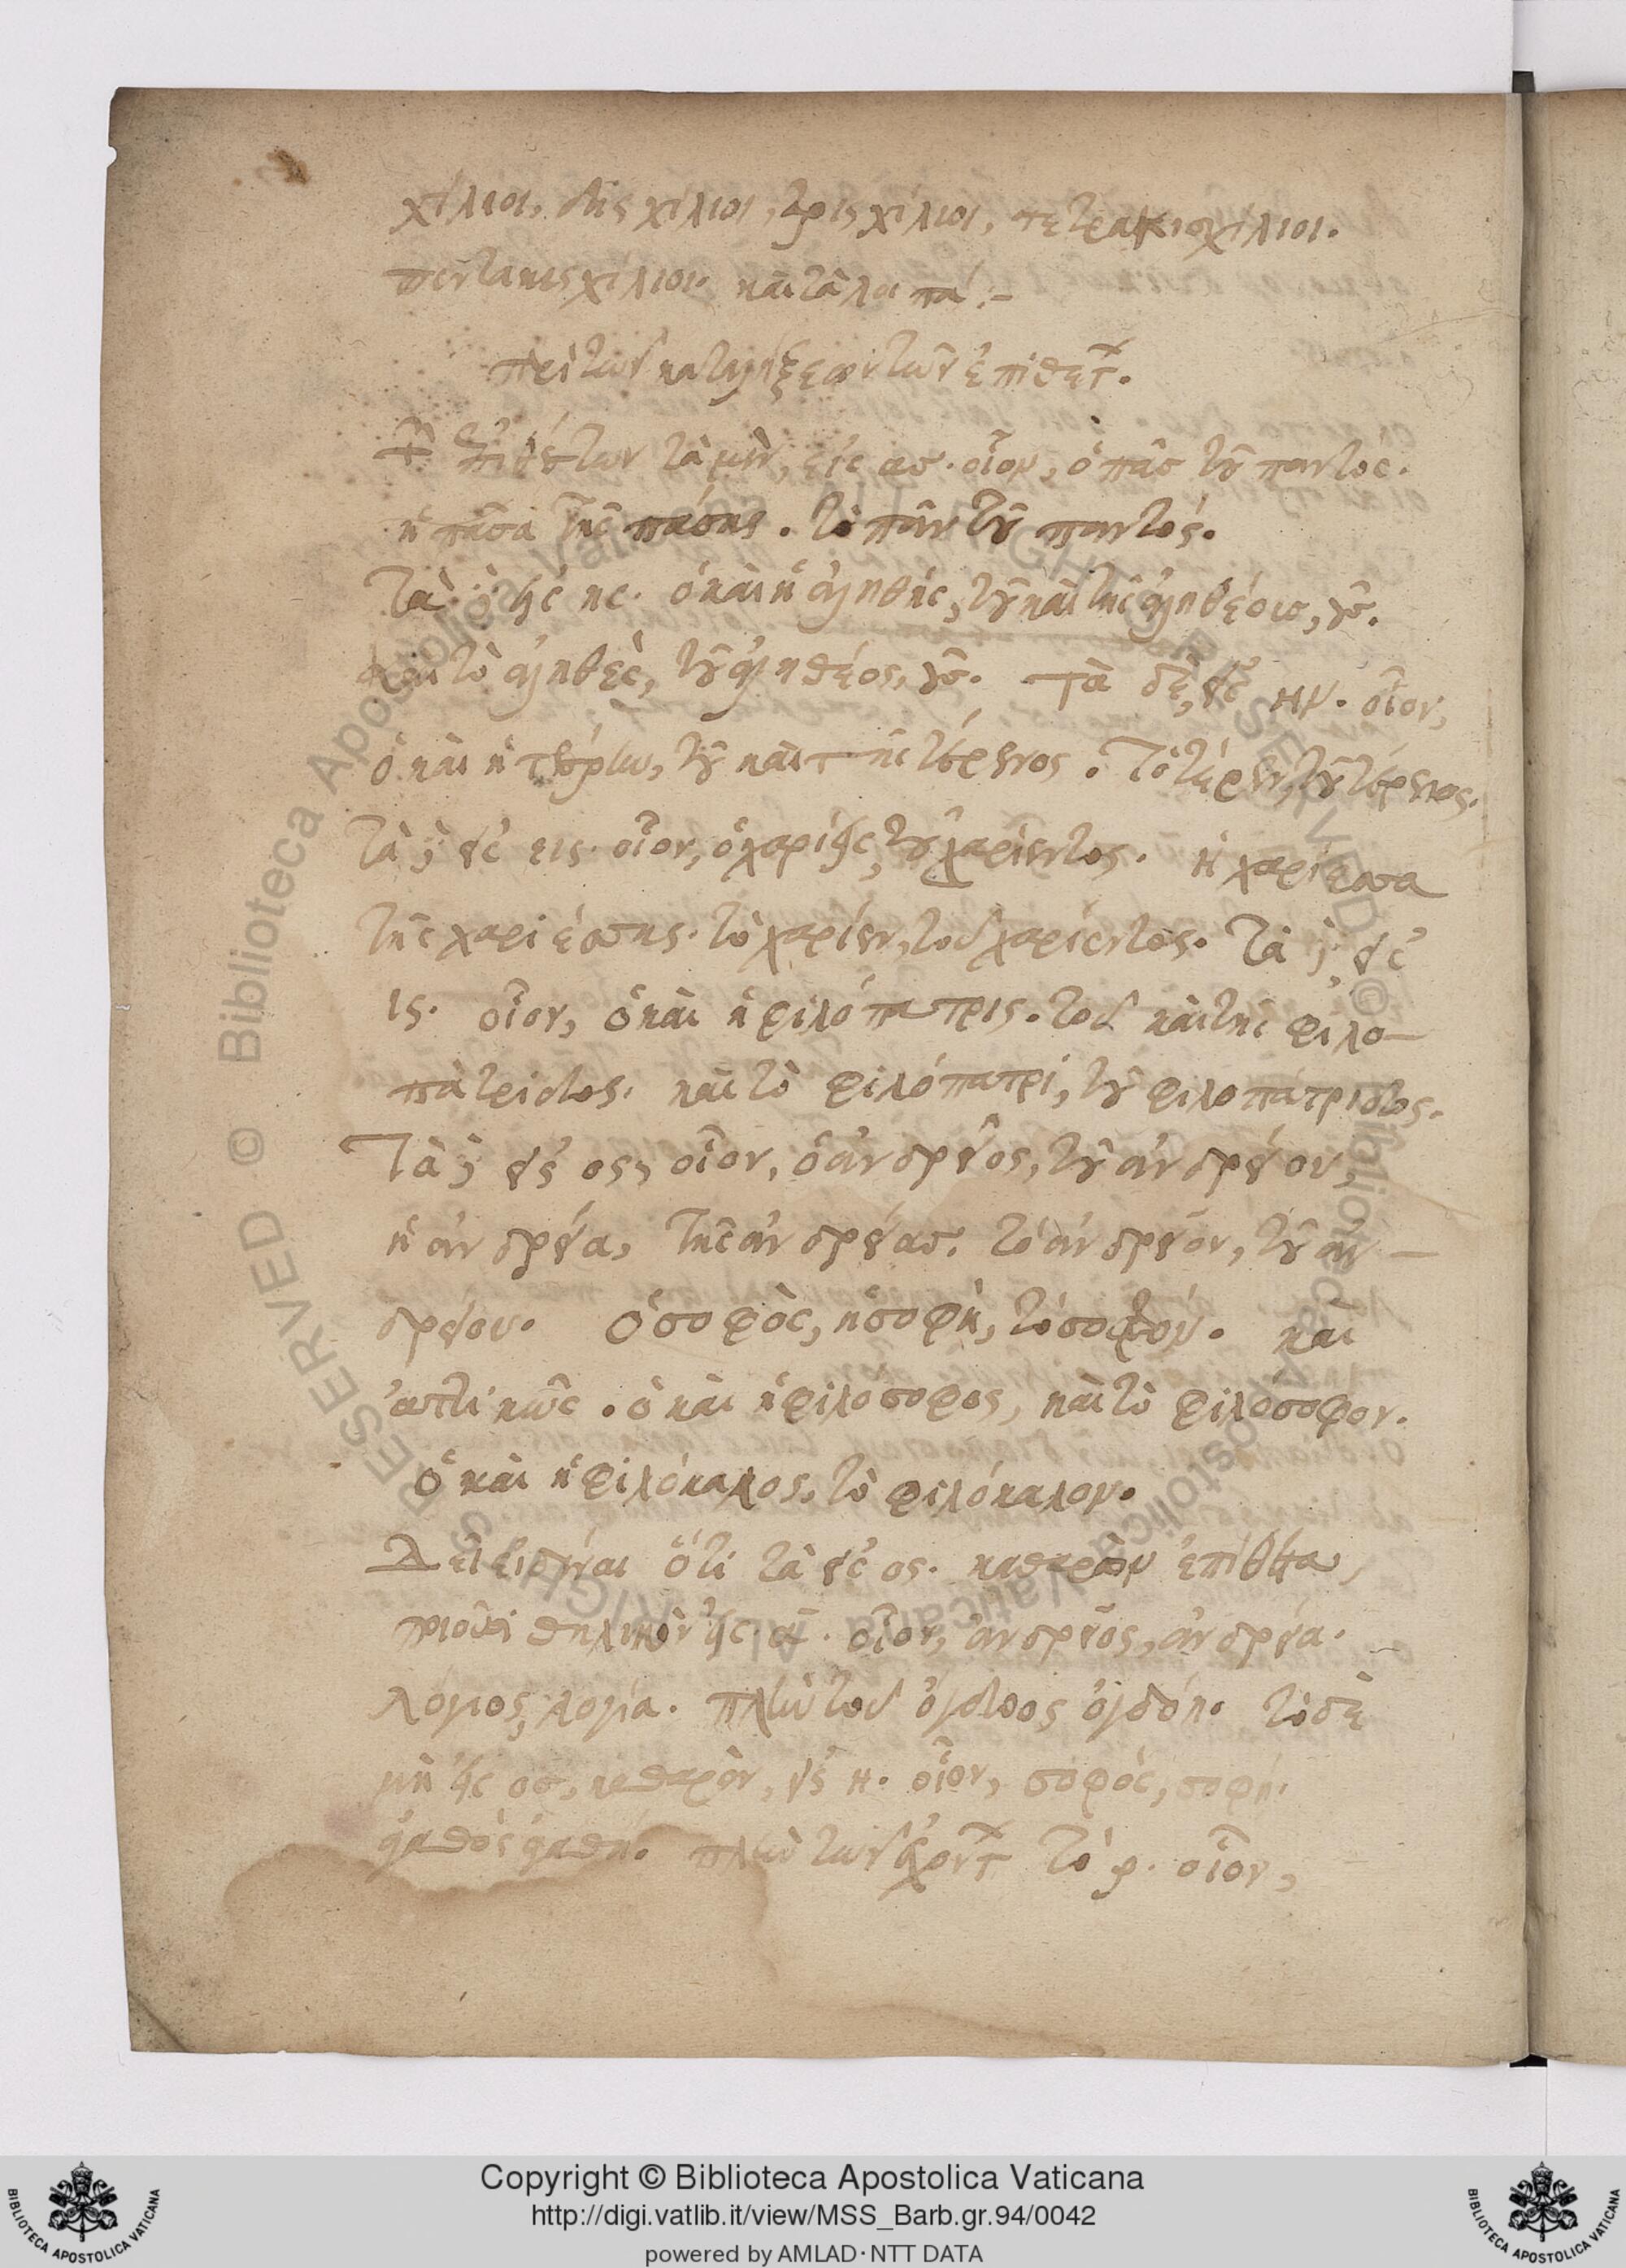 χίλιοι, δὶς χίλιοι, τρὶς χίλιοι, τετρακισχίλιοι.
πεντακις χίλιοι. καὶ τὰ λοιπά :-
περὶ τῶν καταλήξεων τῶν ἐπιθέτ.
Τῶν ἐπιθέτων τὰ μὲν, εἰς ας. οἷον, ὁ πᾶς τοῦ παντός.
ἡ πᾶσα τῆς πάσης. τὸ πᾶν τοῦ παντός.
Τὰ δὲ εἰς ης. ὁ καὶ ἡ ἀληθής, τοῦ καὶ τῆς ἀληθέος, οῦς.
καὶ τὸ ἀληθὲς, τοῦ ἀληθέος, οῦς. Τὰ δὲ, εἰς ην. οἷον,
ὁ καὶ ἡ τέρην, τοῦ καὶ τῆς τέρενος. Τὸ τέρεν, τοῦ τέρενος.
Τὰ δὲ εἰς εις. οἷον, ὁ χαρίεις, τοῦ χαρίεντος. ἡ χαρίεσσα
τῆς χαριέσσης. τὸ χαρίεν, τοῦ χαρίεντος. Τὰ δὲ εἰς
ις. οἷον, ὁ καὶ ἡ φιλόπατρις. τοῦ καὶ τῆς φιλο-
πάτριδος. καὶ τὸ φιλόπατρι, τοῦ φιλοπάτριδος.
Τὰ δὲ εἰς ος, οἷον, ὁ ἀνδρεῖος, τοῦ ἀνδρείου,
ἡ ἀνδρεία, τῆς ἀνδρείας. τὸ ἀνδρεῖον, τοῦ ἀν-
δρείου. ὁ σοφὸς, ἡ σοφὴ, τὸ σοφόν. καὶ
ἀττικῶς. ὁ καὶ ἡ φιλόσοφος, καὶ τὸ φιλόσοφον.
ὁ καὶ ἡ φιλόκαλος, τὸ φιλόκαλον.
Δεῖ εἰδέναι ὅτι τὰ εἰς ος. καθαρὸν ἐπίθετα,
ποιοῦσι θηλυκὸν εἰς α. οἷον, ἀνδρεῖος, ἀνδρεία.
λόγιος, λογία. πλὴν τοῦ ὄγδοος ὀγδόη. τὸ δὲ
μὴ εἰς ος, καθαρὸν, εἰς η. οἷον, σοφὸς, σοφή.
ἀγαθὸς ἀγαθή. πλὴν τῶν ἐχόντ τὸ ρ. οἷον,
Copyright © Biblioteca Apostolica Vaticana
http://digi.vatlib.it/view/MSS_Barb.gr.94/0042
powered by AMLAD·NTT DATA